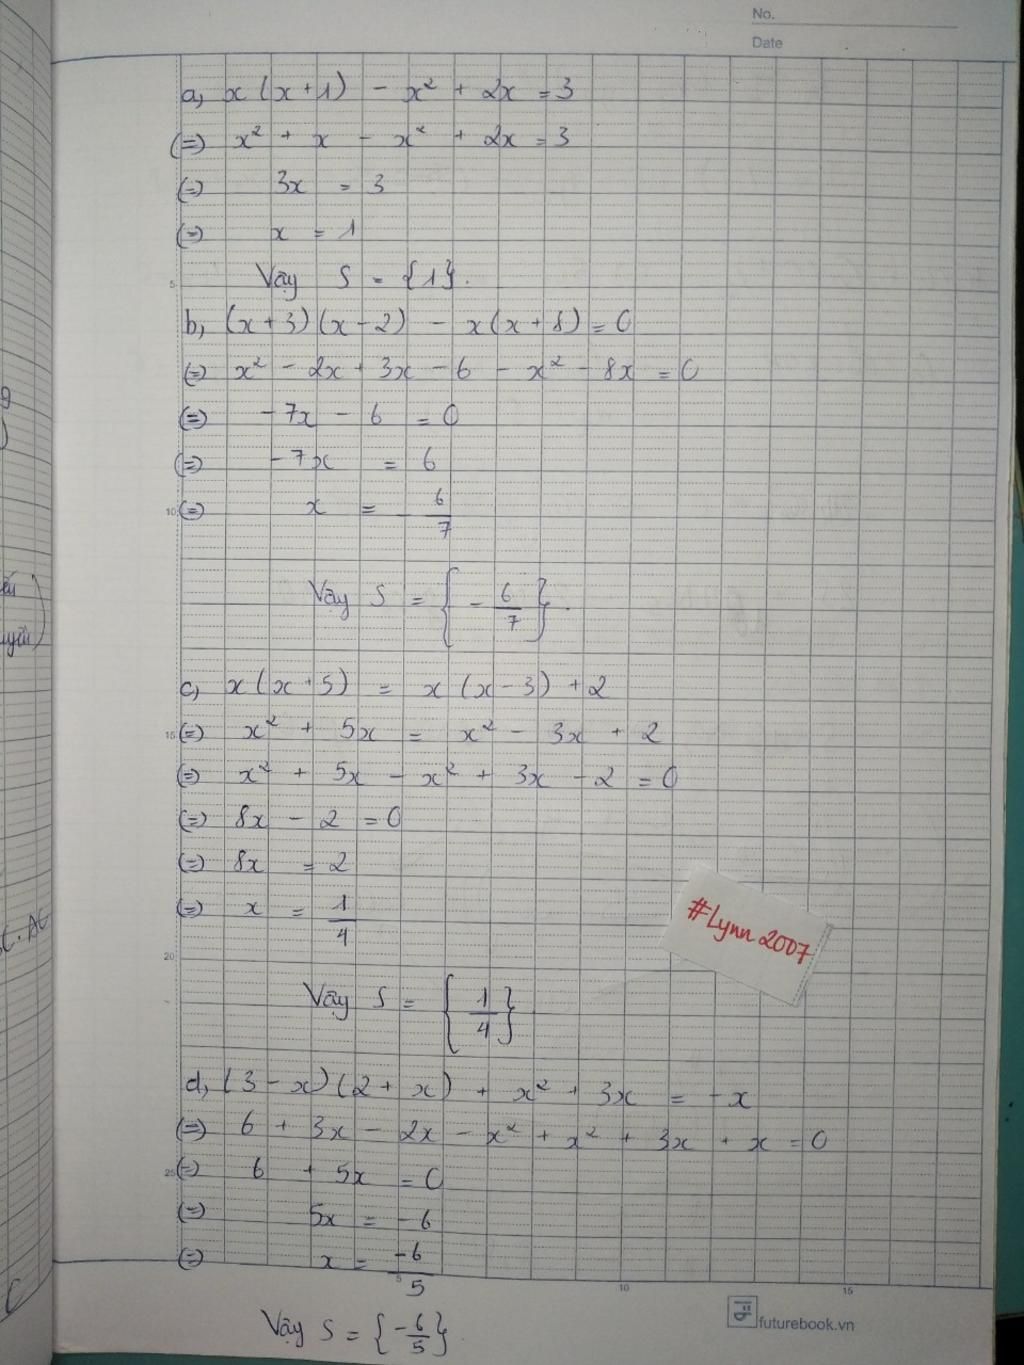 No.
Date
a, x(x+1) - x² + 2x = 3
(=) x² + x - x² + 2x = 3
(=) 3x = 3
(=) x = 1
Vậy S = {1}.
b, (x+3)(x-2) - x(x+8) = 0
(=) x² - 2x + 3x - 6 - x² - 8x = 0
(=) -7x - 6 = 0
(=) -7x = 6
(=) x = -6/7
Vậy S = {-6/7}.
c, x(x+5) = x(x-3) + 2
(=) x² + 5x = x² - 3x + 2
(=) x² + 5x - x² + 3x - 2 = 0
(=) 8x - 2 = 0
(=) 8x = 2
(=) x = 1/4
#Lynn2007
Vậy S = {1/4}
d, (3-x)(2+x) + x² + 3x = -x
(=) 6 + 3x - 2x - x² + x² + 3x + x = 0
(=) 6 + 5x = 0
(=) 5x = -6
(=) x = -6/5
Vậy S = {-6/5}.
5
10
15
20
25
5
10
15
futurebook.vn